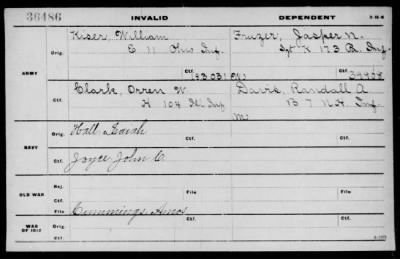 36486 INVALID DEPENDENT
Kiser, William Frazer, Jasper N.
Orig. E 11 Ohio Inf Sgt K 173 Pa. Inf
ARMY Ctf. Ctf. 39958
Clark, Orren W. Davis, Randall A
Ctf. H 104 Ill Inf B 7 N.H. Inf
M
Orig. Hall Isaiah Ctf.
NAVY
Ctf. Joyce John C.
Rej. File
OLD WAR
Ctf. File
Cummings Amos
WAR OF 1812 Orig. Ctf.
Ctf.